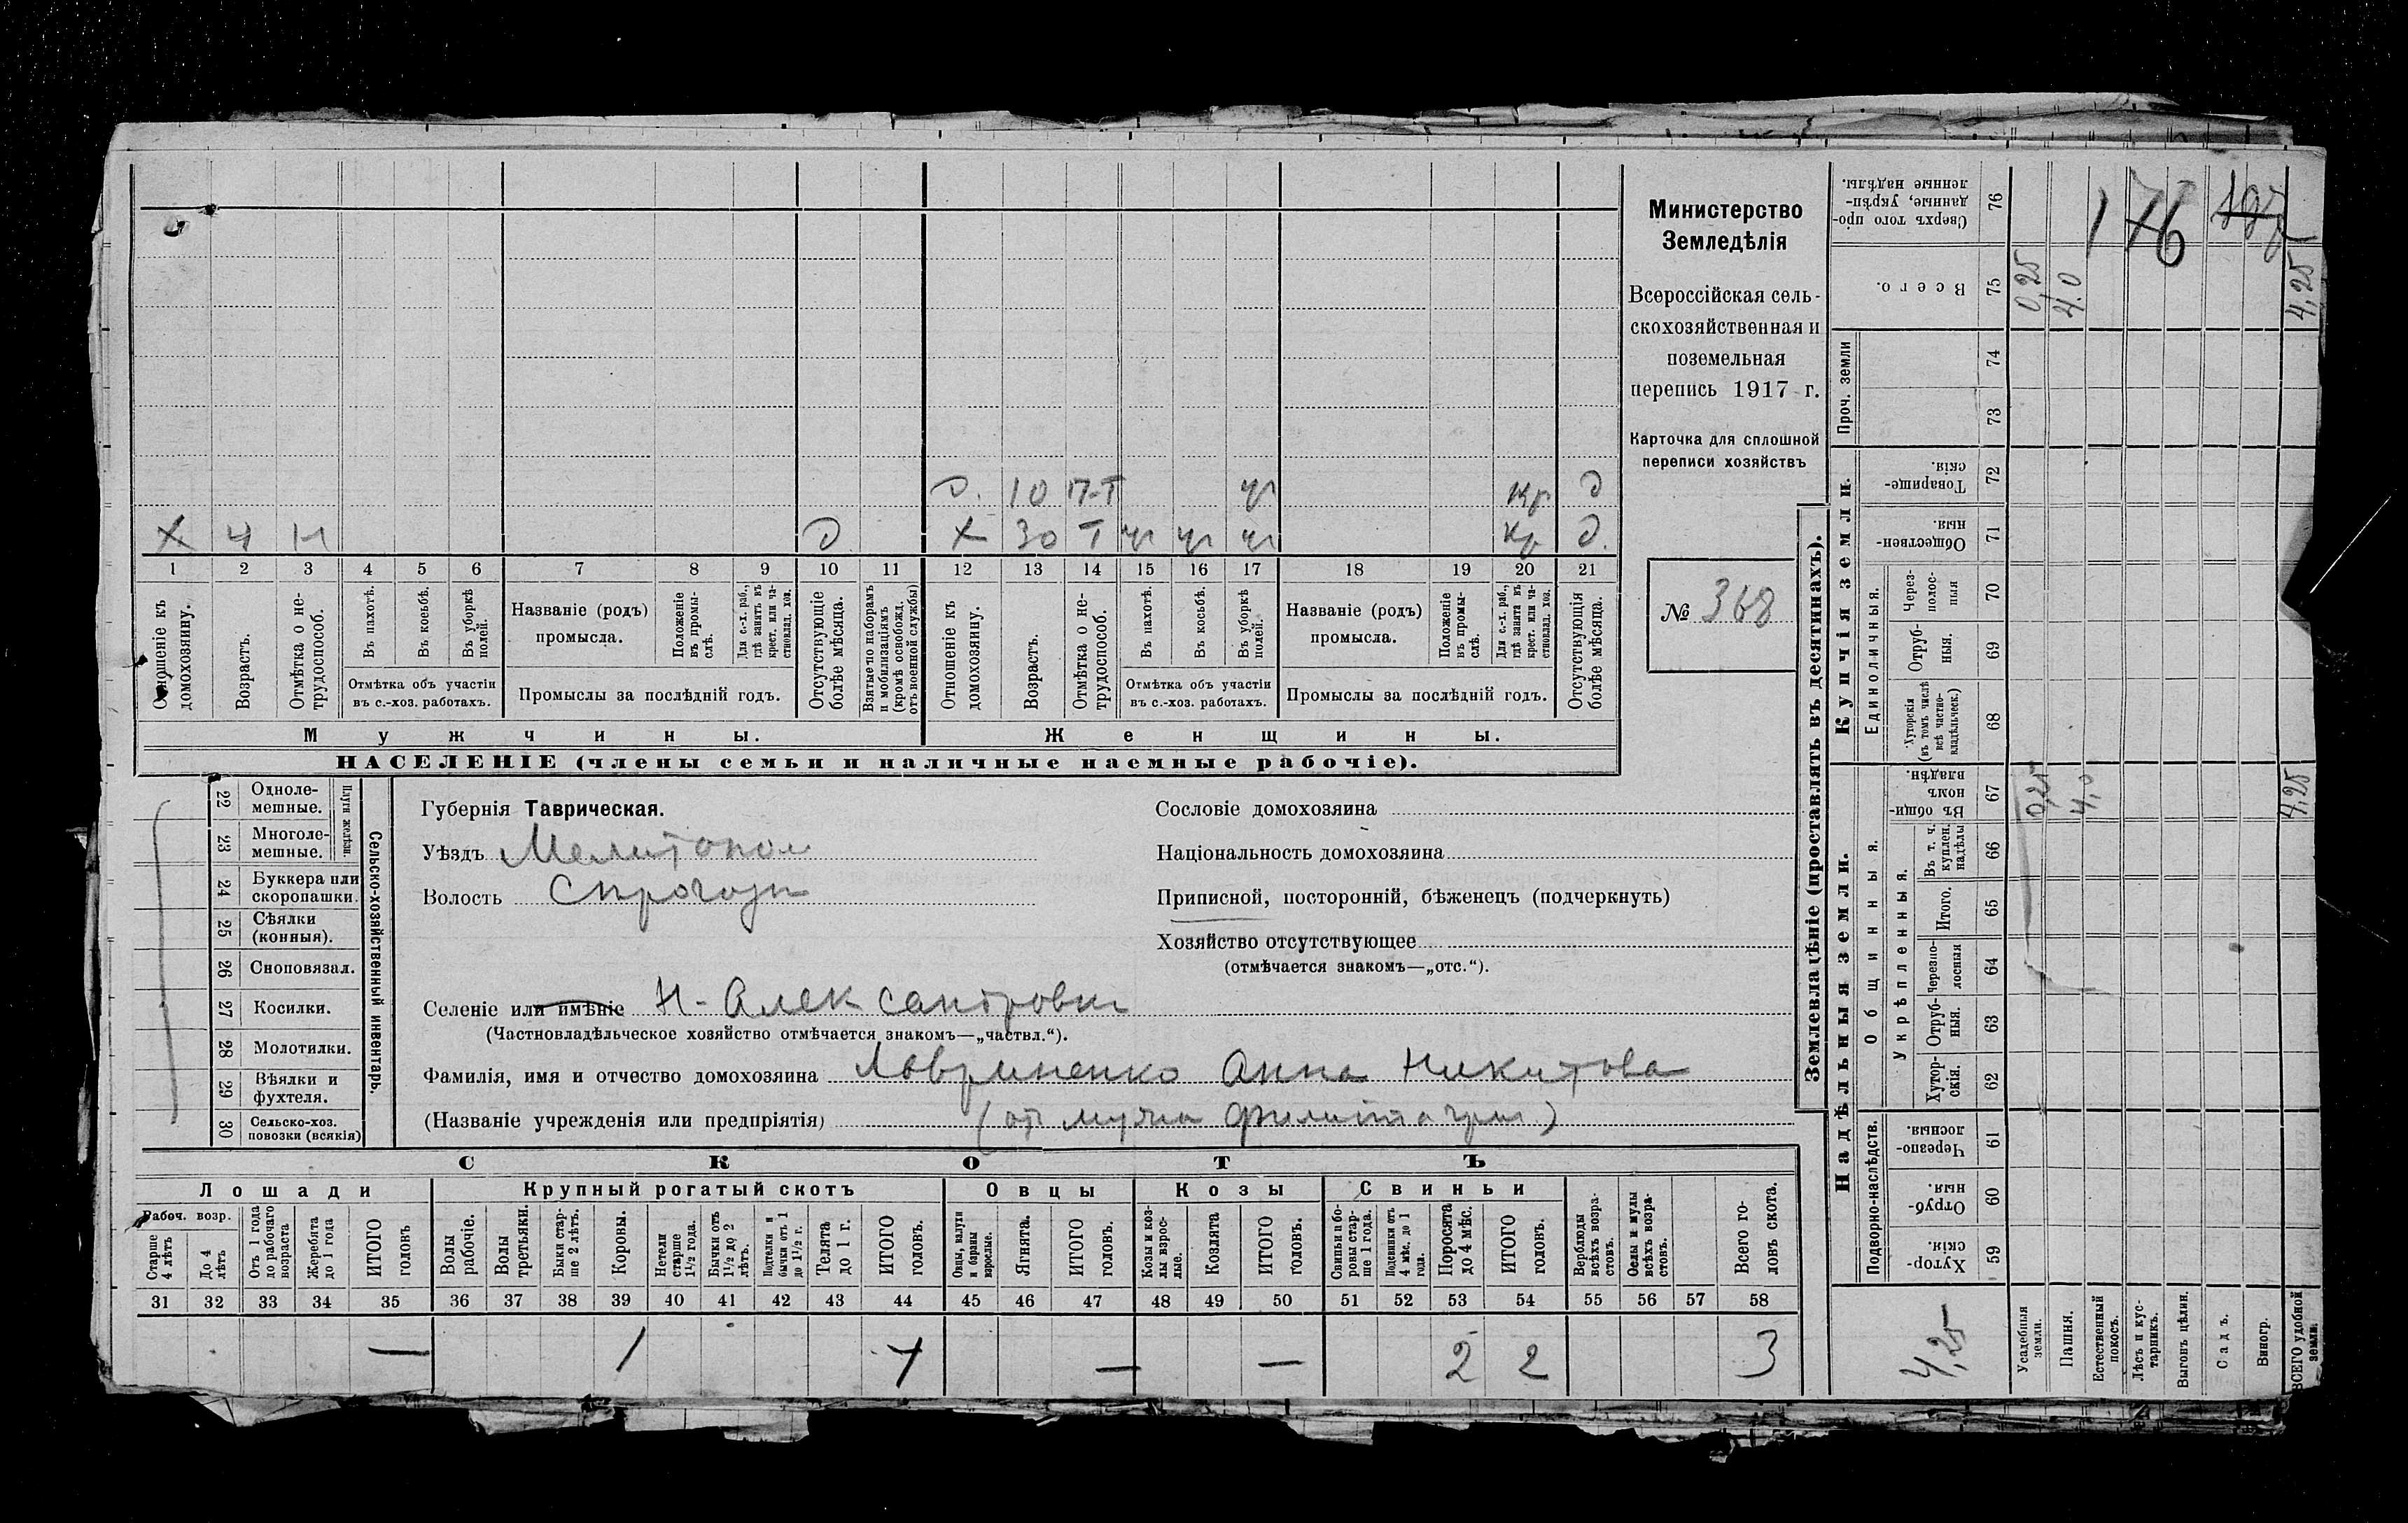 Министерство
Земледѣлія
Всероссійская сель-
скохозяйственная и
поземельная
перепись 1917 г.
Карточка для сплошной
переписи хозяйствъ
№ 368
О. 10 П-Т Кр д
Х 4 Н д Х 30 Т Кр д.
1 2 3 4 5 6 7 8 9 10 11 12 13 14 15 16 17 18 19 20 21
Отношеніе къ домохозяину.
Возрастъ.
Отмѣтка о не-трудоспособ.
Въ пахотѣ.
Въ косьбѣ.
Въ уборкѣ полей.
Отмѣтка объ участіи
въ с.-хоз. работахъ.
Названіе (родъ)
промысла.
Положеніе въ промы-слѣ.
Для с.-х. раб., гдѣ занятъ въ крест. или ча-стновлад. хоз.
Промыслы за послѣдній годъ.
Отсутствующіе болѣе мѣсяца.
Взятые по наборамъ и мобилизаціямъ (кромѣ освобожд. отъ военной службы)
Отношеніе къ домохозяину.
Возрастъ.
Отмѣтка о не-трудоспособ.
Въ пахотѣ.
Въ косьбѣ.
Въ уборкѣ полей.
Отмѣтка объ участіи
въ с.-хоз. работахъ.
Названіе (родъ)
промысла.
Положеніе въ промы-слѣ.
Для с.-х. раб., гдѣ занята въ крест. или ча-стновлад. хоз.
Промыслы за послѣдній годъ.
Отсутствующія болѣе мѣсяца.
Мужчины. Женщины.
НАСЕЛЕНІЕ (члены семьи и наличные наемные рабочіе).
22 Одноле-мешные.
23 Многоле-мешные.
Плуги желѣзн.
24 Буккера или скоропашки.
25 Сѣялки (конныя).
26 Сноповязал.
27 Косилки.
28 Молотилки.
29 Вѣялки и фухтеля.
30 Сельско-хоз. повозки (всякія)
Сельско-хозяйственный инвентарь.
Губернія Таврическая.
Уѣздъ Мелитопол
Волость
Сословіе домохозяина
Національность домохозяина
Приписной, посторонній, бѣженецъ (подчеркнуть)
Хозяйство отсутствующее
(отмѣчается знакомъ—„отс.“).
Селеніе или имѣніе Н-Александровки
(Частновладѣльческое хозяйство отмѣчается знакомъ—„частвл.“).
Фамилія, имя и отчество домохозяина Лавриненко Анна Никитова
(Названіе учрежденія или предпріятія) (
СКОТЪ
Лошади Крупный рогатый скотъ Овцы Козы Свиньи
Рабоч. возр.
Старше 4 лѣтъ
До 4 лѣтъ
Отъ 1 года до рабочаго возраста
Жеребята до 1 года
ИТОГО головъ
Волы рабочіе.
Волы третьяки.
Быки стар-ше 2 лѣтъ.
Коровы.
Нетели старше 1½ года.
Бычки отъ 1½ до 2 лѣтъ.
Подтелки и бычки отъ 1 до 1½ г.
Телята до 1 г.
ИТОГО головъ.
Овцы, валухи и бараны взрослые.
Ягнята.
ИТОГО головъ.
Козы и коз-лы взрос-лые.
Козлята
ИТОГО головъ.
Свиньи и бо-ровы стар-ше 1 года.
Подсвинки отъ 4 мѣс. до 1 года.
Поросята до 4 мѣс.
ИТОГО головъ.
Верблюды всѣхъ возра-стовъ.
Ослы и мулы всѣхъ возра-стовъ.
Всего го-ловъ скота.
31 32 33 34 35 36 37 38 39 40 41 42 43 44 45 46 47 48 49 50 51 52 53 54 55 56 57 58
— 1 1 — — 2 2 3
Землевладѣніе (проставлять въ десятинахъ).
Купчія земли.
Надѣльныя земли.
Сверхъ того про-данные, укрѣп-ленные надѣлы. 76 176
Всего. 75 0,25 4.0 4,25
Проч. земли 74 73
Товарище-скія. 72
Обществен-ныя. 71
Единоличныя.
Через-полос-ныя 70
Отруб-ныя. 69
Хуторскія (въ томъ числѣ всѣ частно-владѣльческ.) 68
Общинныя.
Въ общи-номъ владѣн. 67 0,25 4,0 4,25
Укрѣпленныя.
Въ т. ч. куплен. надѣлы 66
Итого. 65
Черезпо-лосныя 64
Отруб-ныя. 63
Хутор-скія. 62
Подворно-наслѣдств.
Черезпо-лосныя. 61
Отруб-ныя. 60
Хутор-скія. 59
4,25
Усадебныя земли.
Пашня.
Естественный покосъ.
Лѣсъ и кус-тарникъ.
Выгонъ цѣлин.
Садъ.
Виногр.
ВСЕГО удобной земли.